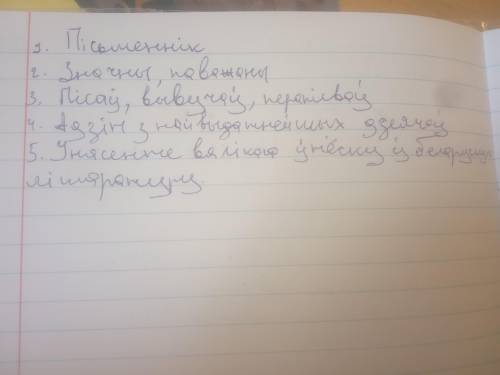 1. Пісьменнік
2. Значны, паважаны
3. Пісаў, вывучаў,
4. Адзін з найвыдатнейшых дзеячаў
5. Унясенне вялікага ўнёску ў
літаратуру.